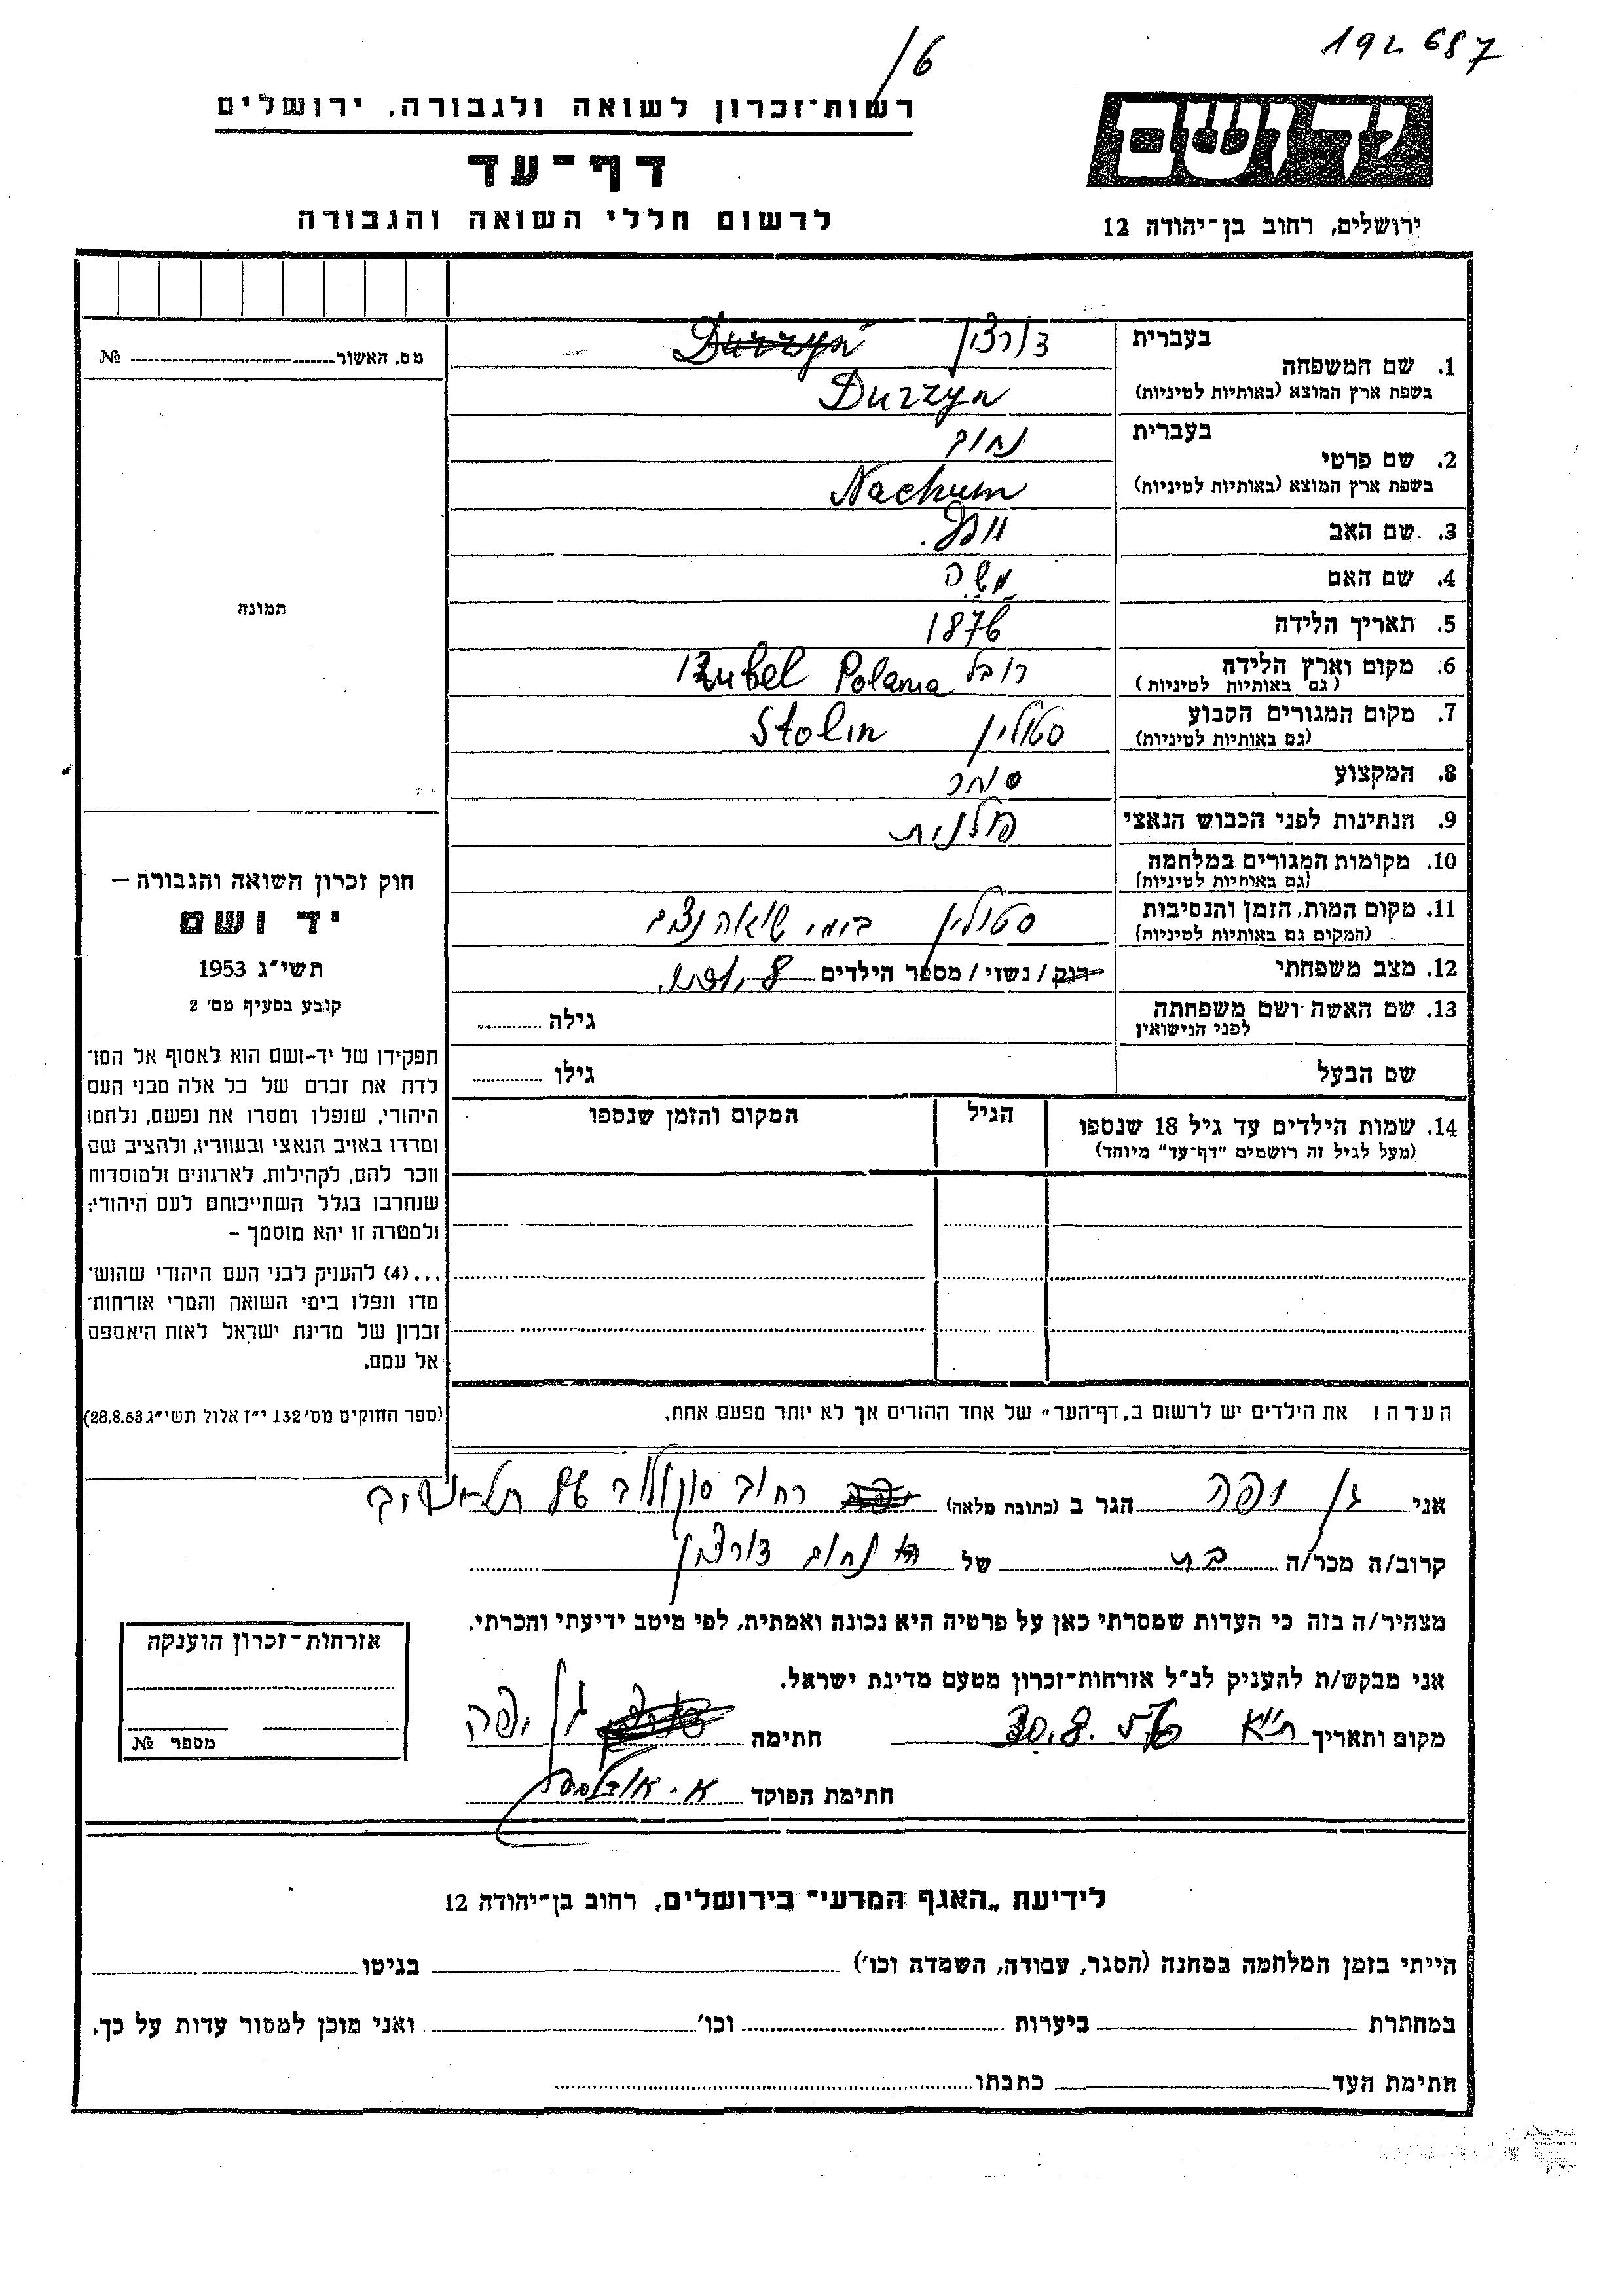 192687
/6
יד ושם
רשות־זכרון לשואה ולגבורה, ירושלים
דף־עד
לרשום חללי השואה והגבורה
ירושלים, רחוב בן־יהודה 12
מס. האשור № 
1. שם המשפחה
בעברית
דורצין
בשפת ארץ המוצא (באותיות לטיניות)
Durzyn
2. שם פרטי
בעברית
נחום
בשפת ארץ המוצא (באותיות לטיניות)
Nachum
3. שם האב
4. שם האם
משה
5. תאריך הלידה
1876
6. מקום וארץ הלידה (גם באותיות לטיניות)
רובל Rubel Polania
7. מקום המגורים הקבוע (גם באותיות לטיניות)
סטולין Stolin
8. המקצוע
סוחר
9. הנתינות לפני הכבוש הנאצי
פולנית
10. מקומות המגורים במלחמה (גם באותיות לטיניות)
11. מקום המות, הזמן והנסיבות (המקום גם באותיות לטיניות)
סטולין בימי שואה
12. מצב משפחתי
רוק / נשוי / מספר הילדים 8
13. שם האשה ושם משפחתה לפני הנישואין
גילה
שם הבעל
גילו
14. שמות הילדים עד גיל 18 שנספו
(מעל לגיל זה רושמים "דף־עד" מיוחד)
הגיל
המקום והזמן שנספו
הערה: את הילדים יש לרשום ב„דף־העד" של אחד ההורים אך לא יותר מפעם אחת.
תמונה
חוק זכרון השואה והגבורה –
יד ושם
תשי"ג 1953
קובע בסעיף מס' 2
תפקידו של יד-ושם הוא לאסוף אל המו־
לדת את זכרם של כל אלה מבני העם
היהודי, שנפלו ומסרו את נפשם, נלחמו
ומרדו באויב הנאצי ובעוזריו, ולהציב שם
וזכר להם, לקהילות, לארגונים ולמוסדות
שנחרבו בגלל השתייכותם לעם היהודי;
ולמטרה זו יהא מוסמך –
...(4) להעניק לבני העם היהודי שהוש־
מדו ונפלו בימי השואה והמרי אזרחות־
זכרון של מדינת ישראל לאות היאספם
אל עמם.
(ספר החוקים מס' 132 י"ז אלול תשי"ג 28.8.53)
אני גן יפה הגר ב (כתובת מלאה) רחוב סוקולוב תל אביב
קרוב/ה מכר/ה בת של נחום דורצין
מצהיר/ה בזה כי העדות שמסרתי כאן על פרטיה היא נכונה ואמתית, לפי מיטב ידיעתי והכרתי.
אני מבקש/ת להעניק לנ"ל אזרחות־זכרון מטעם מדינת ישראל.
מקום ותאריך ת"א 30.8. חתימה גן יפה
חתימת הפוקד
אזרחות־זכרון הוענקה
מספר №
לידיעת „האגף המדעי" בירושלים, רחוב בן־יהודה 12
הייתי בזמן המלחמה במחנה (הסגר, עבודה, השמדה וכו') בגיטו
במחתרת ביערות וכו' ואני מוכן למסור עדות על כך.
חתימת העד כתבתו